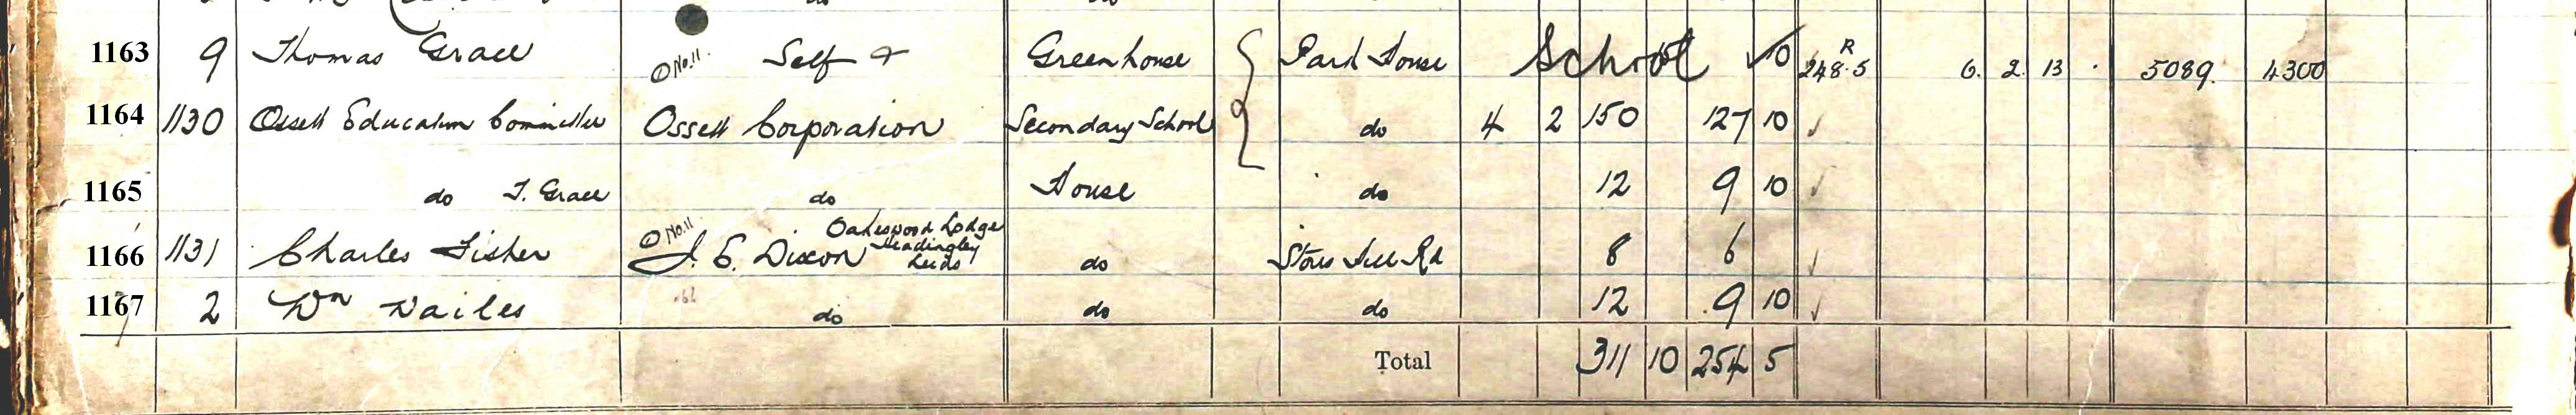 1163 9 Thomas Grace ① No. 11. Self & Greenhouse Park House School 10 R 248.5 6. 2. 13 . 5089. 4300
1164 1130 Ossett Education Committee Ossett Corporation Secondary School do 4 2 150 127 10 ✓
1165 do T. Grace do House do 12 9 10 ✓
1166 1131 Charles Fisher ① No. 11 J. E. Dixon Oakeswood Lodge Headingley Leeds do Stores Hill Rd 8 6 ✓
1167 2 Wm Wailes do do do 12 9 10 ✓
Total 311 10 254 5